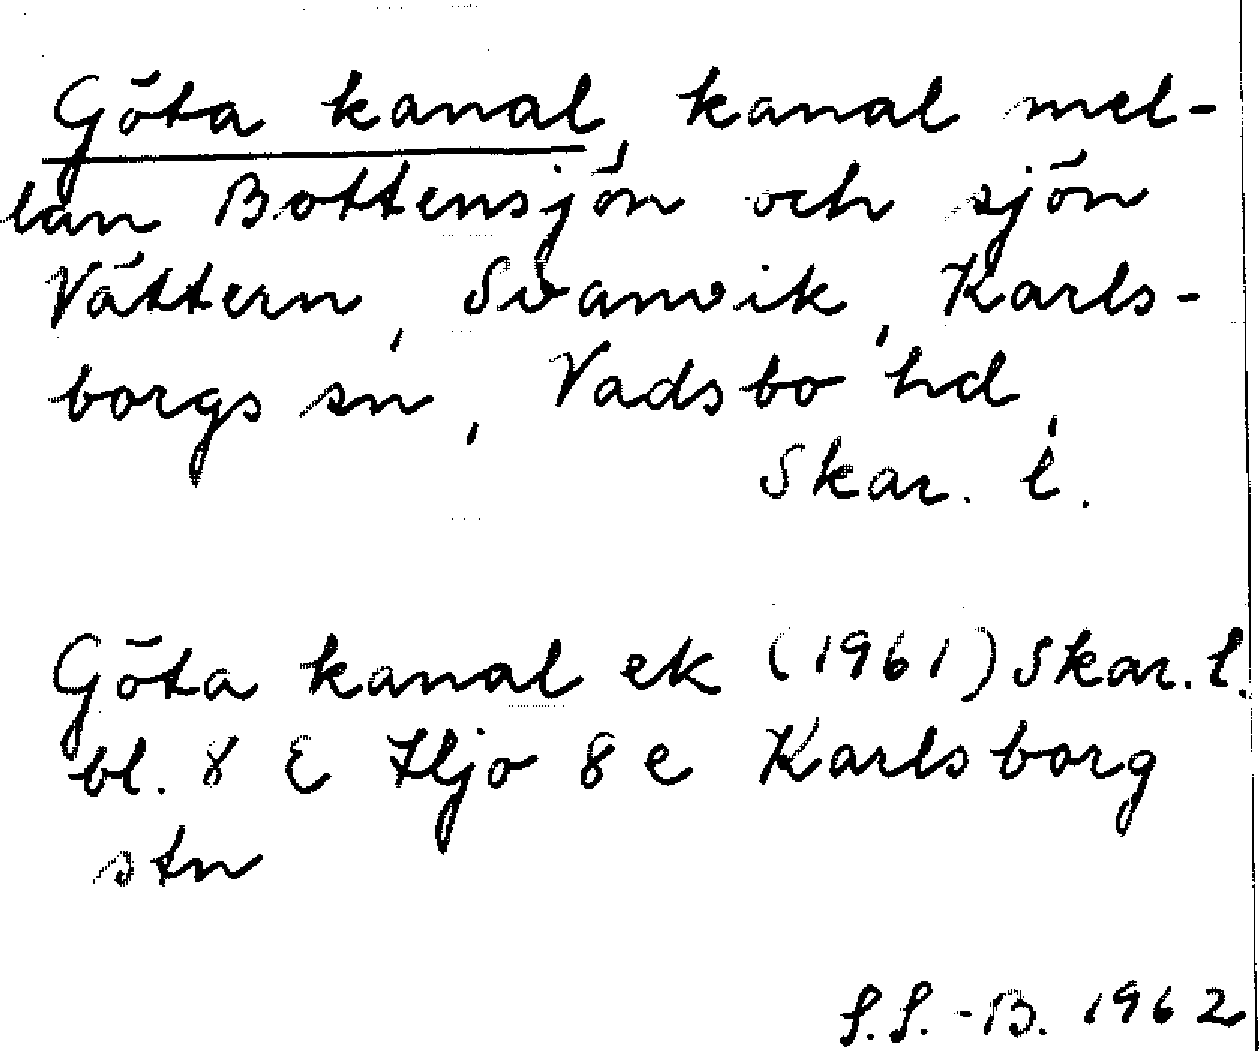 Göta kanal, kanal mel-
lan Bottensjön och sjön
Vättern, Svanvik, Karls-
borgs sn, Vadsbo hd,
Skar. l.
Göta kanal ek (1961) Skar. l.
bl. 8 E Hjo 8 e Karlsborg
stn
S.S.-B. 1962